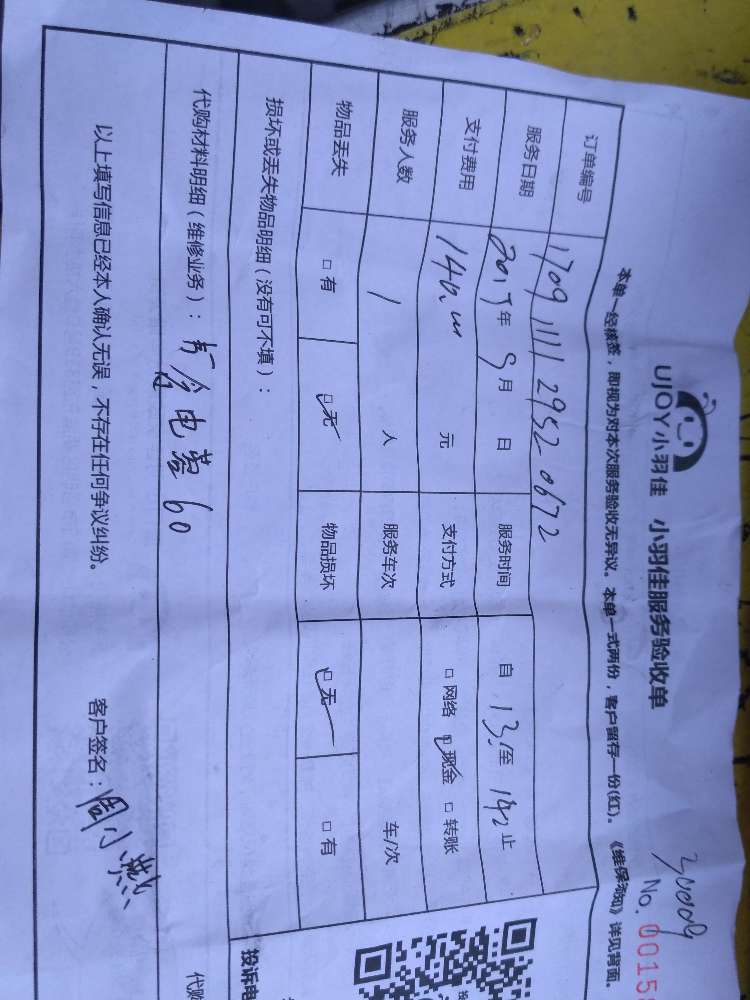 30009
No. 0015
UJOY小羽佳 小羽佳服务验收单
本单一经核签，即视为对本次服务验收无异议。本单一式两份，客户留存一份(红)。《维保须知》详见背面。
订单编号 1709 1111 2952 0672
服务日期 2017年 9月 日 服务时间 自 13:至 14:2 止
支付费用 140.00 元 支付方式 □ 网络 □ 现金 □ 转账
服务人数 1 人 服务车次 车/次
物品丢失 □ 有 □ 无 物品损坏 □ 无 □ 有
损坏或丢失物品明细（没有可不填）：
代购材料明细（维修业务）： 电 60
以上填写信息已经本人确认无误，不存在任何争议纠纷。 客户签名：周小燕
投诉电
代购